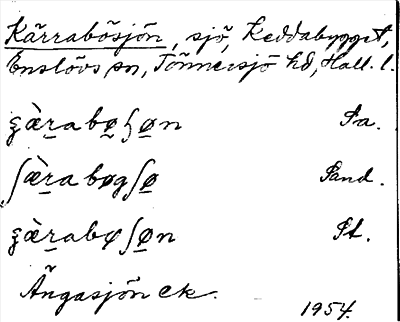 Kärrabösjön, sjö, Keddabygget,
Enslövs sn, Tönnersjö hd, Hall. l.
ʒæ̀ṟabø̱ʃø̱n Fa.
ʃæ̀ṟabøgʃø̱ Sand.
ʒæ̀ṟabøʃø̱n St.
Ängasjön ek.
1954.